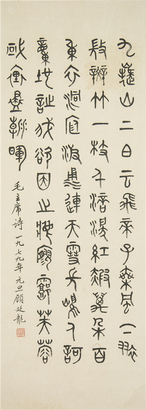 九嶷山上白雲飛帝子乘風下翠
微斑竹一枝千滴淚紅霞萬朵百
重衣洞庭波涌連天雪長島人歌
動地詩我欲因之夢寥廓芙蓉
國裏盡朝暉
毛主席詩 一九七九年 元旦 顧廷龍